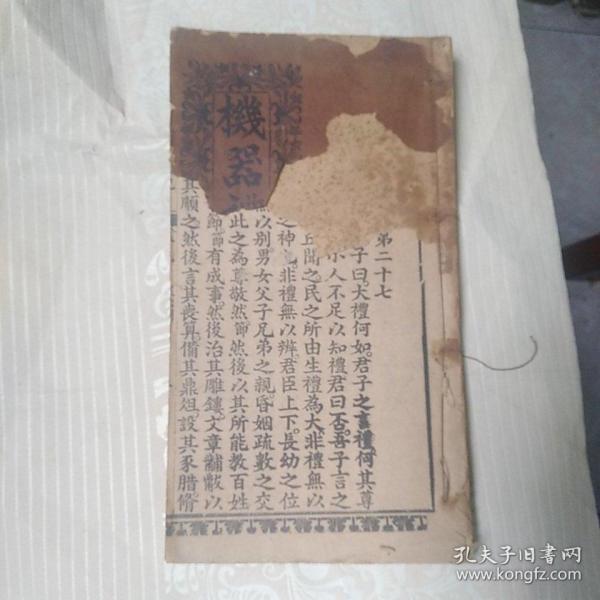 機器
第二十七
子曰大禮何如君子之言禮何其尊
小人不足以知禮君曰否吾子言之
丘聞之民之所由生禮為大非禮無以
之神非禮無以辨君臣上下長幼之位
無以別男女父子兄弟之親昏姻疏數之交
此之為尊敬然然後以其所能教百姓
節有成事然後治其雕鏤文章黼黻以
其順之然後言其喪算備其鼎俎設其豕腊脩
孔夫子旧书网
www.kongfz.com